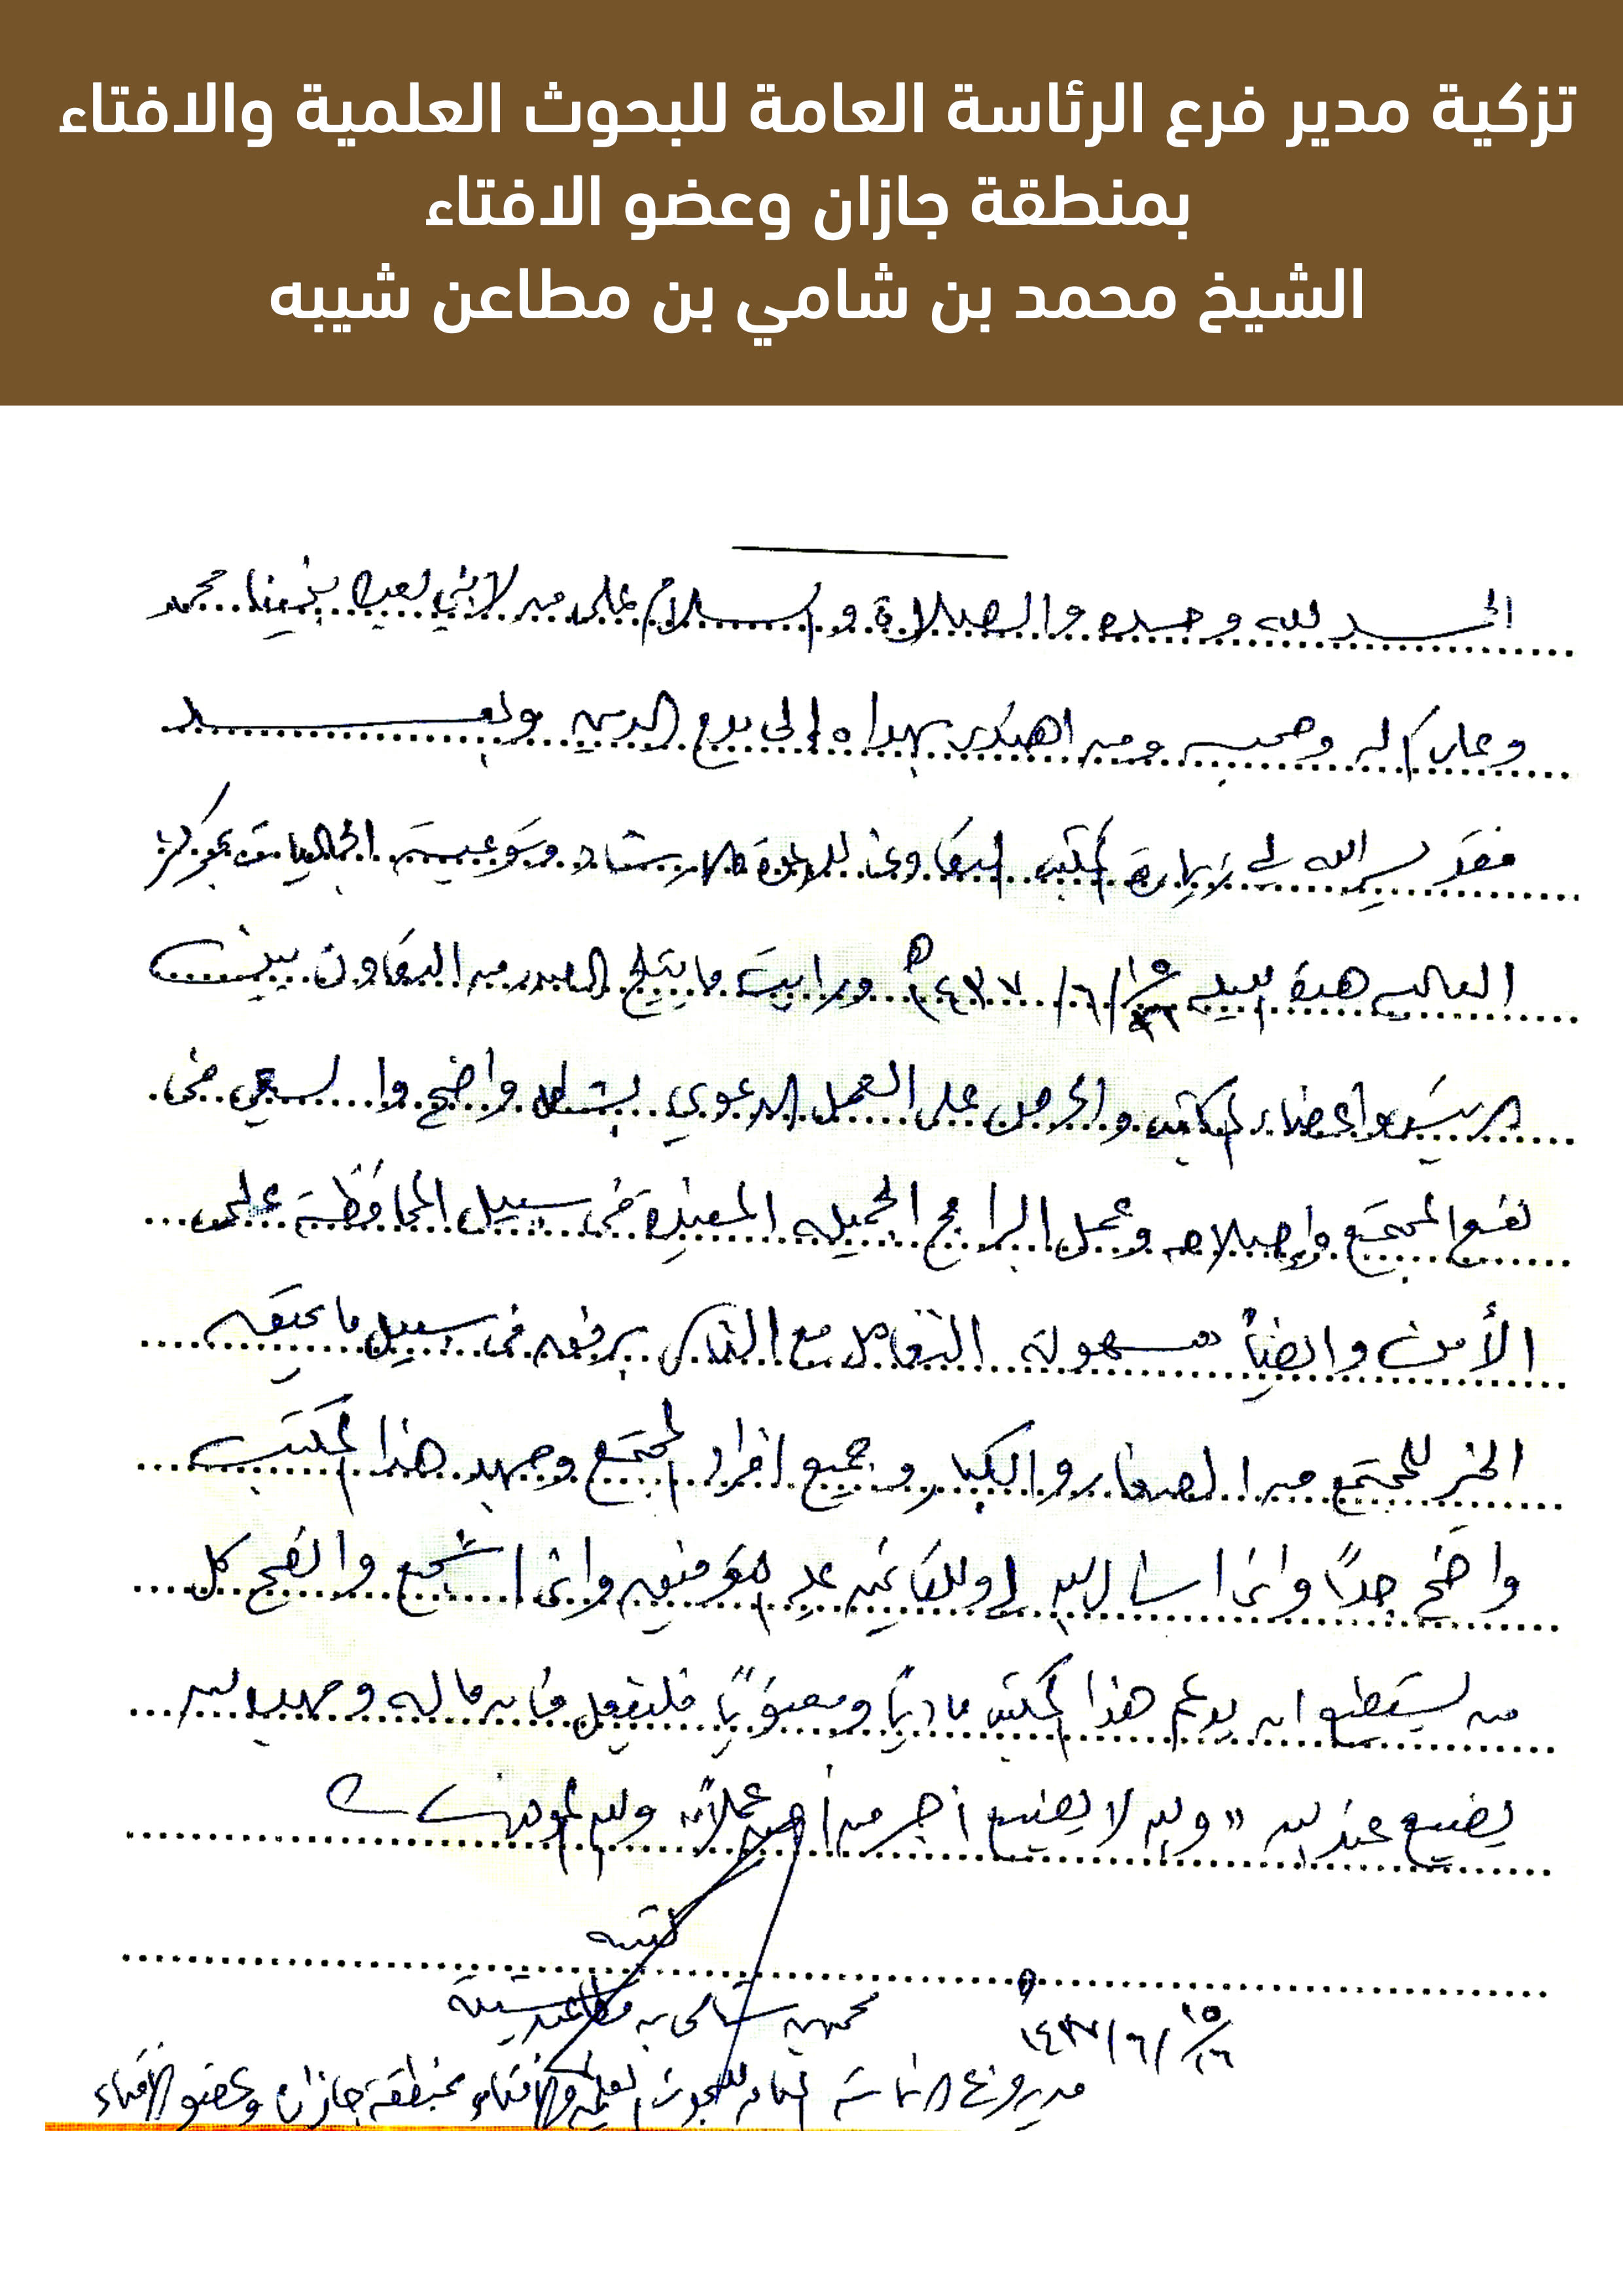 تزكية مدير فرع الرئاسة العامة للبحوث العلمية والافتاء
بمنطقة جازان وعضو الافتاء
الشيخ محمد بن شامي بن مطاعن شيبه
الحمد لله وحده والصلاة والسلام على من لا نبي بعده نبينا محمد
وعلى آله وصحبه ومن اهتدى بهداه إلى يوم الدين وبعد
فقد يسر الله لي زيارة لمكتب التعاوني للدعوة والارشاد وتوعية الجاليات بمركز
العالية هذه الليلة ١٥/١٦/٦/١٤٣٧ه ورأيت ما يثلج الصدر من التعاون بين
الرئيس واعضاء المكتب والحرص على العمل الدعوي بشكل واضح والسعي في
نفع المجتمع وإصلاحه وعمل البرامج الجميله المفيدة في سبيل المحافظة على
الأمن وايضاً سهولة التعامل مع الناس برفق في سبيل ما يحقق
الخير للمجتمع من الصغار والكبار وجميع افراد المجتمع وجهد هذا المكتب
واضح جداً وانى اسأل الله لي وللقائمين عليه التوفيق وانى اشجع وانصح كل
من يستطيع ان يدعم هذا المكتب مادياً ومعنوياً فليفعل فان ماله وجهده لن
يضيع عند الله «والله لا يضيع أجر من أحسن عملاً» والله الموفق
كتبه
محمد بن شامي بن مطاعن شيبة
١٥/١٦/٦/١٤٣٧ه
مدير فرع الرئاسة العامة للبحوث العلمية والافتاء بمنطقة جازان وعضو الافتاء